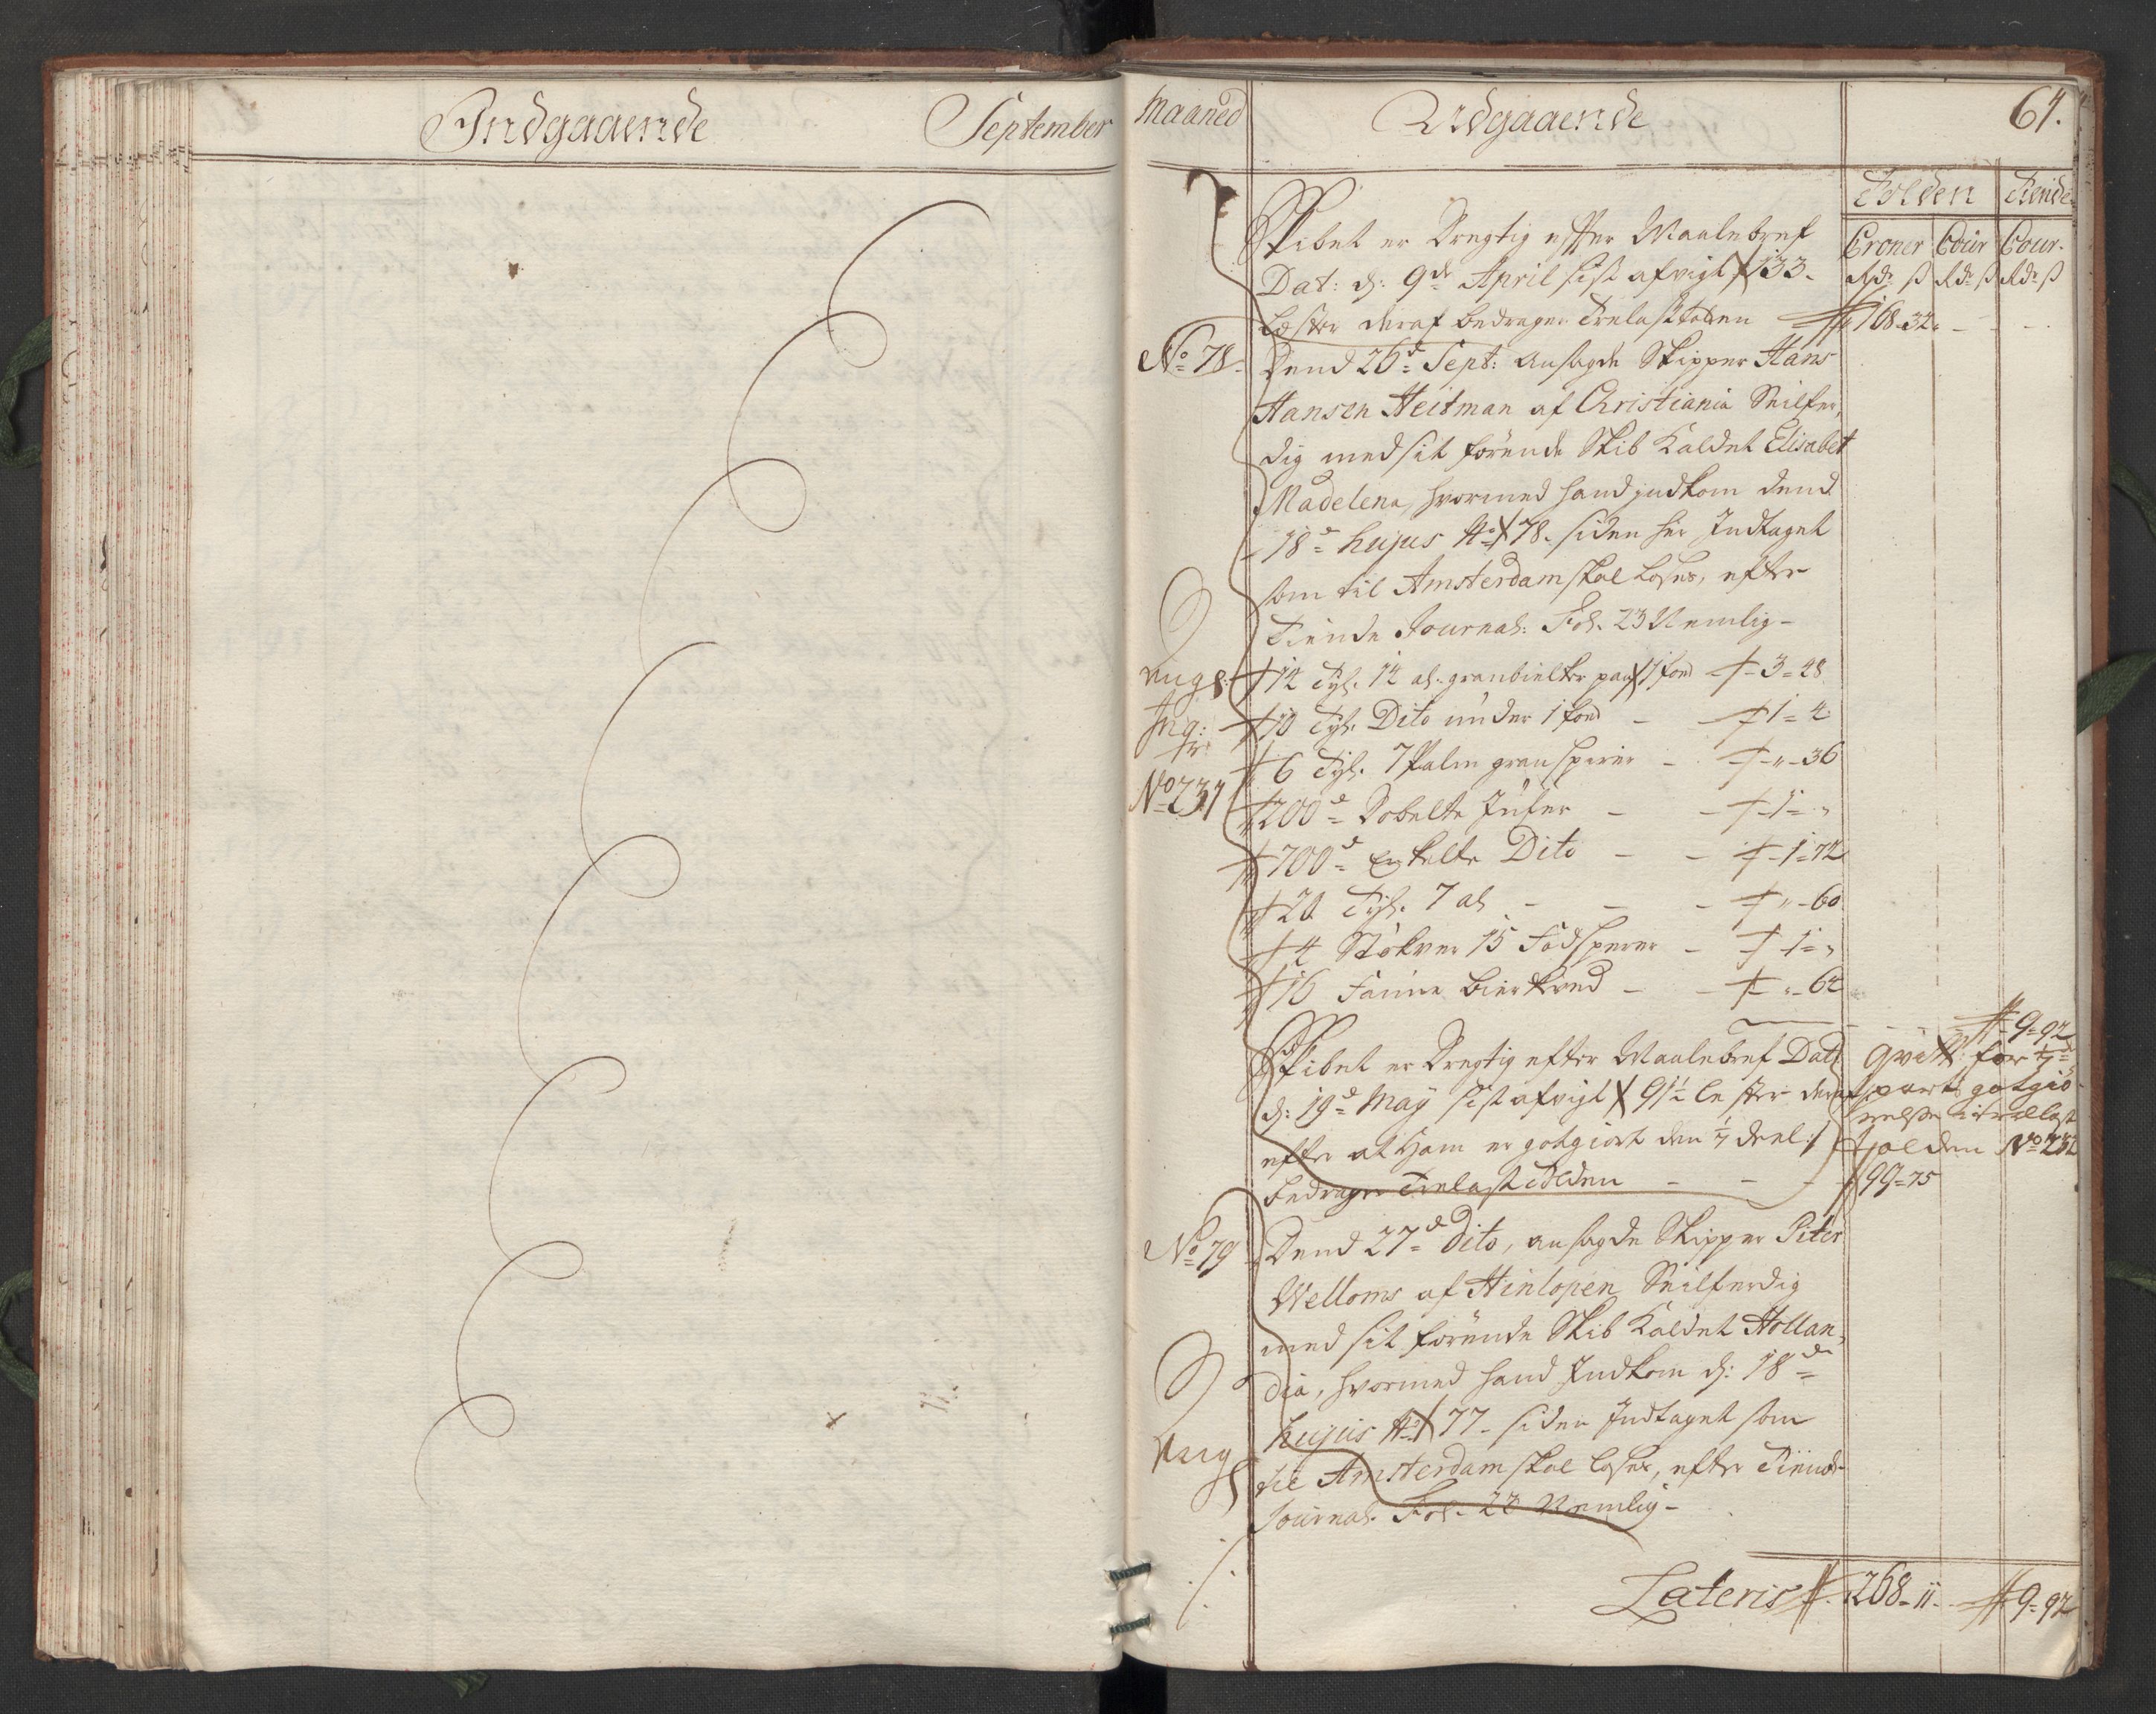 Indgaaende
September
Maaned
Udgaaende
64.
Tolden Tiende
Croner Cour Cour.
Rdr ß Rdr ß Rdr ß
Skibet er Dregtig efter Maalebref
Dat: d: 9de April sist afvigt 133.
Læster deraf bedrager Trelasttolden 168-32.
No 78.
Dend 26d Sept: ansagde Skipper Hans
Hansen Heitman af Christiania Seilfer,
dig med sit førende Skib Kaldet Elisabet
Madelena, hvormed hand indkom dend
18d hujus No 78. siden her Indtaget
som til Amsterdam skal loses, efter
Tiende Journal: Fol. 23 Nemlig-
14 Tÿl. 12 al. granbielker paa 1 fod - 3-28
10 Tÿl. Dito under 1 fod - - 1-4
6 Tÿl. 7 Palm gran sperer - - „-36
No 237
200d Dobelte Jufer - - 1-„
700d Enkelte Dito - - 1-72
20 Tÿl. 7 al - - - „-60
4 Støkver 15 Fodsperer - 1-„
16 Faune bierkved - - „-64
9-92
Skibet er Dregtig efter Maalebref Dat:
d: 19d Maÿ sist afvigt 91½ lester deraf
efter at Ham er gotgiort den 1/7 deel
bedrager Trelast tolden - - - 99-75
qvitt: for 1/7d
part gotgiø
relse i trælast
tolden No 232
No 79
Dend 27d Dito, ansagde Skipper Piter
Welloms af Hinlopen Seilferdig
med sit førende Skib Kaldet Hollan,
dia, hvormed hand Indkom d: 18de
hujus No 77- siden Indtaget som
til Amsterdam skal loses, efter Tiende
Journal. Fol. 22 Nemlig-
Lateris 268-11- 9-92